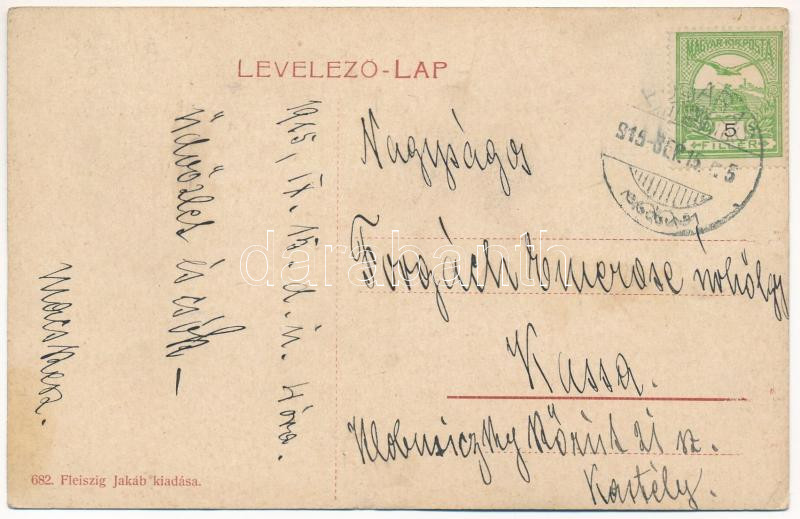 LEVELEZŐ-LAP
MAGYAR KIR. POSTA
5
FILLÉR
915 SEP 15
1915. IX. 15. d. u. 4 óra.
Üdvözlet és csók –
Nagyságos
Forgách Emerose úrhölgy
Kassa.
Klobusiczky körút 21 sz.
Kastély.
682. Fleiszig Jakáb kiadása.
darabanth